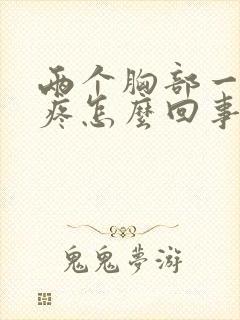 两个胸部一
疼怎麽回事
鬼鬼夢游